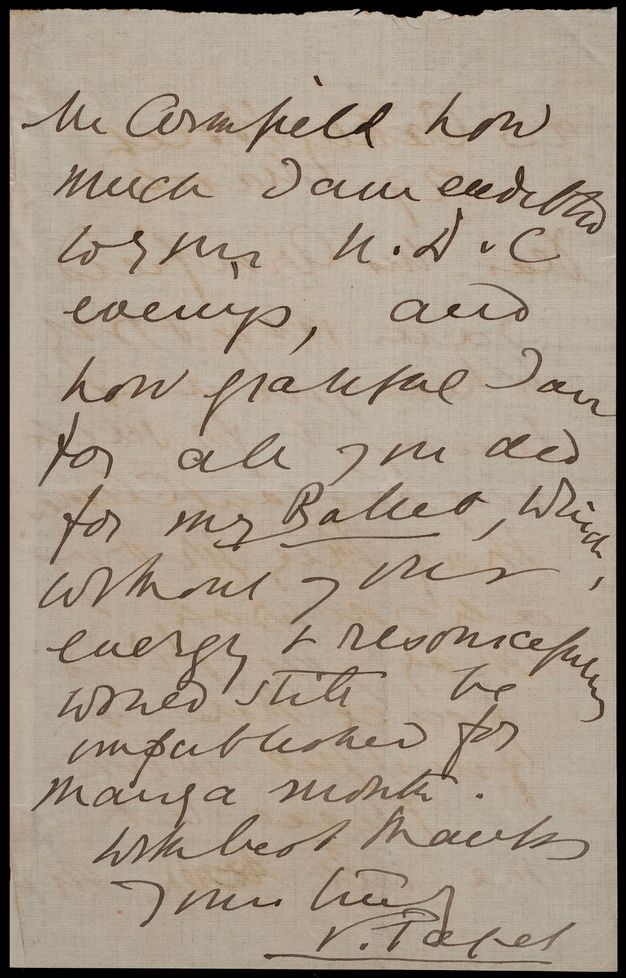 Mr Cornfield how
much I am endebted
to you N. D. C
evenings, and
how grateful I am
for all you did
for my Ballet, which,
without your
energy & resourcefulness
would still be
unpublished for
many a month.
With best thanks
Yours truly